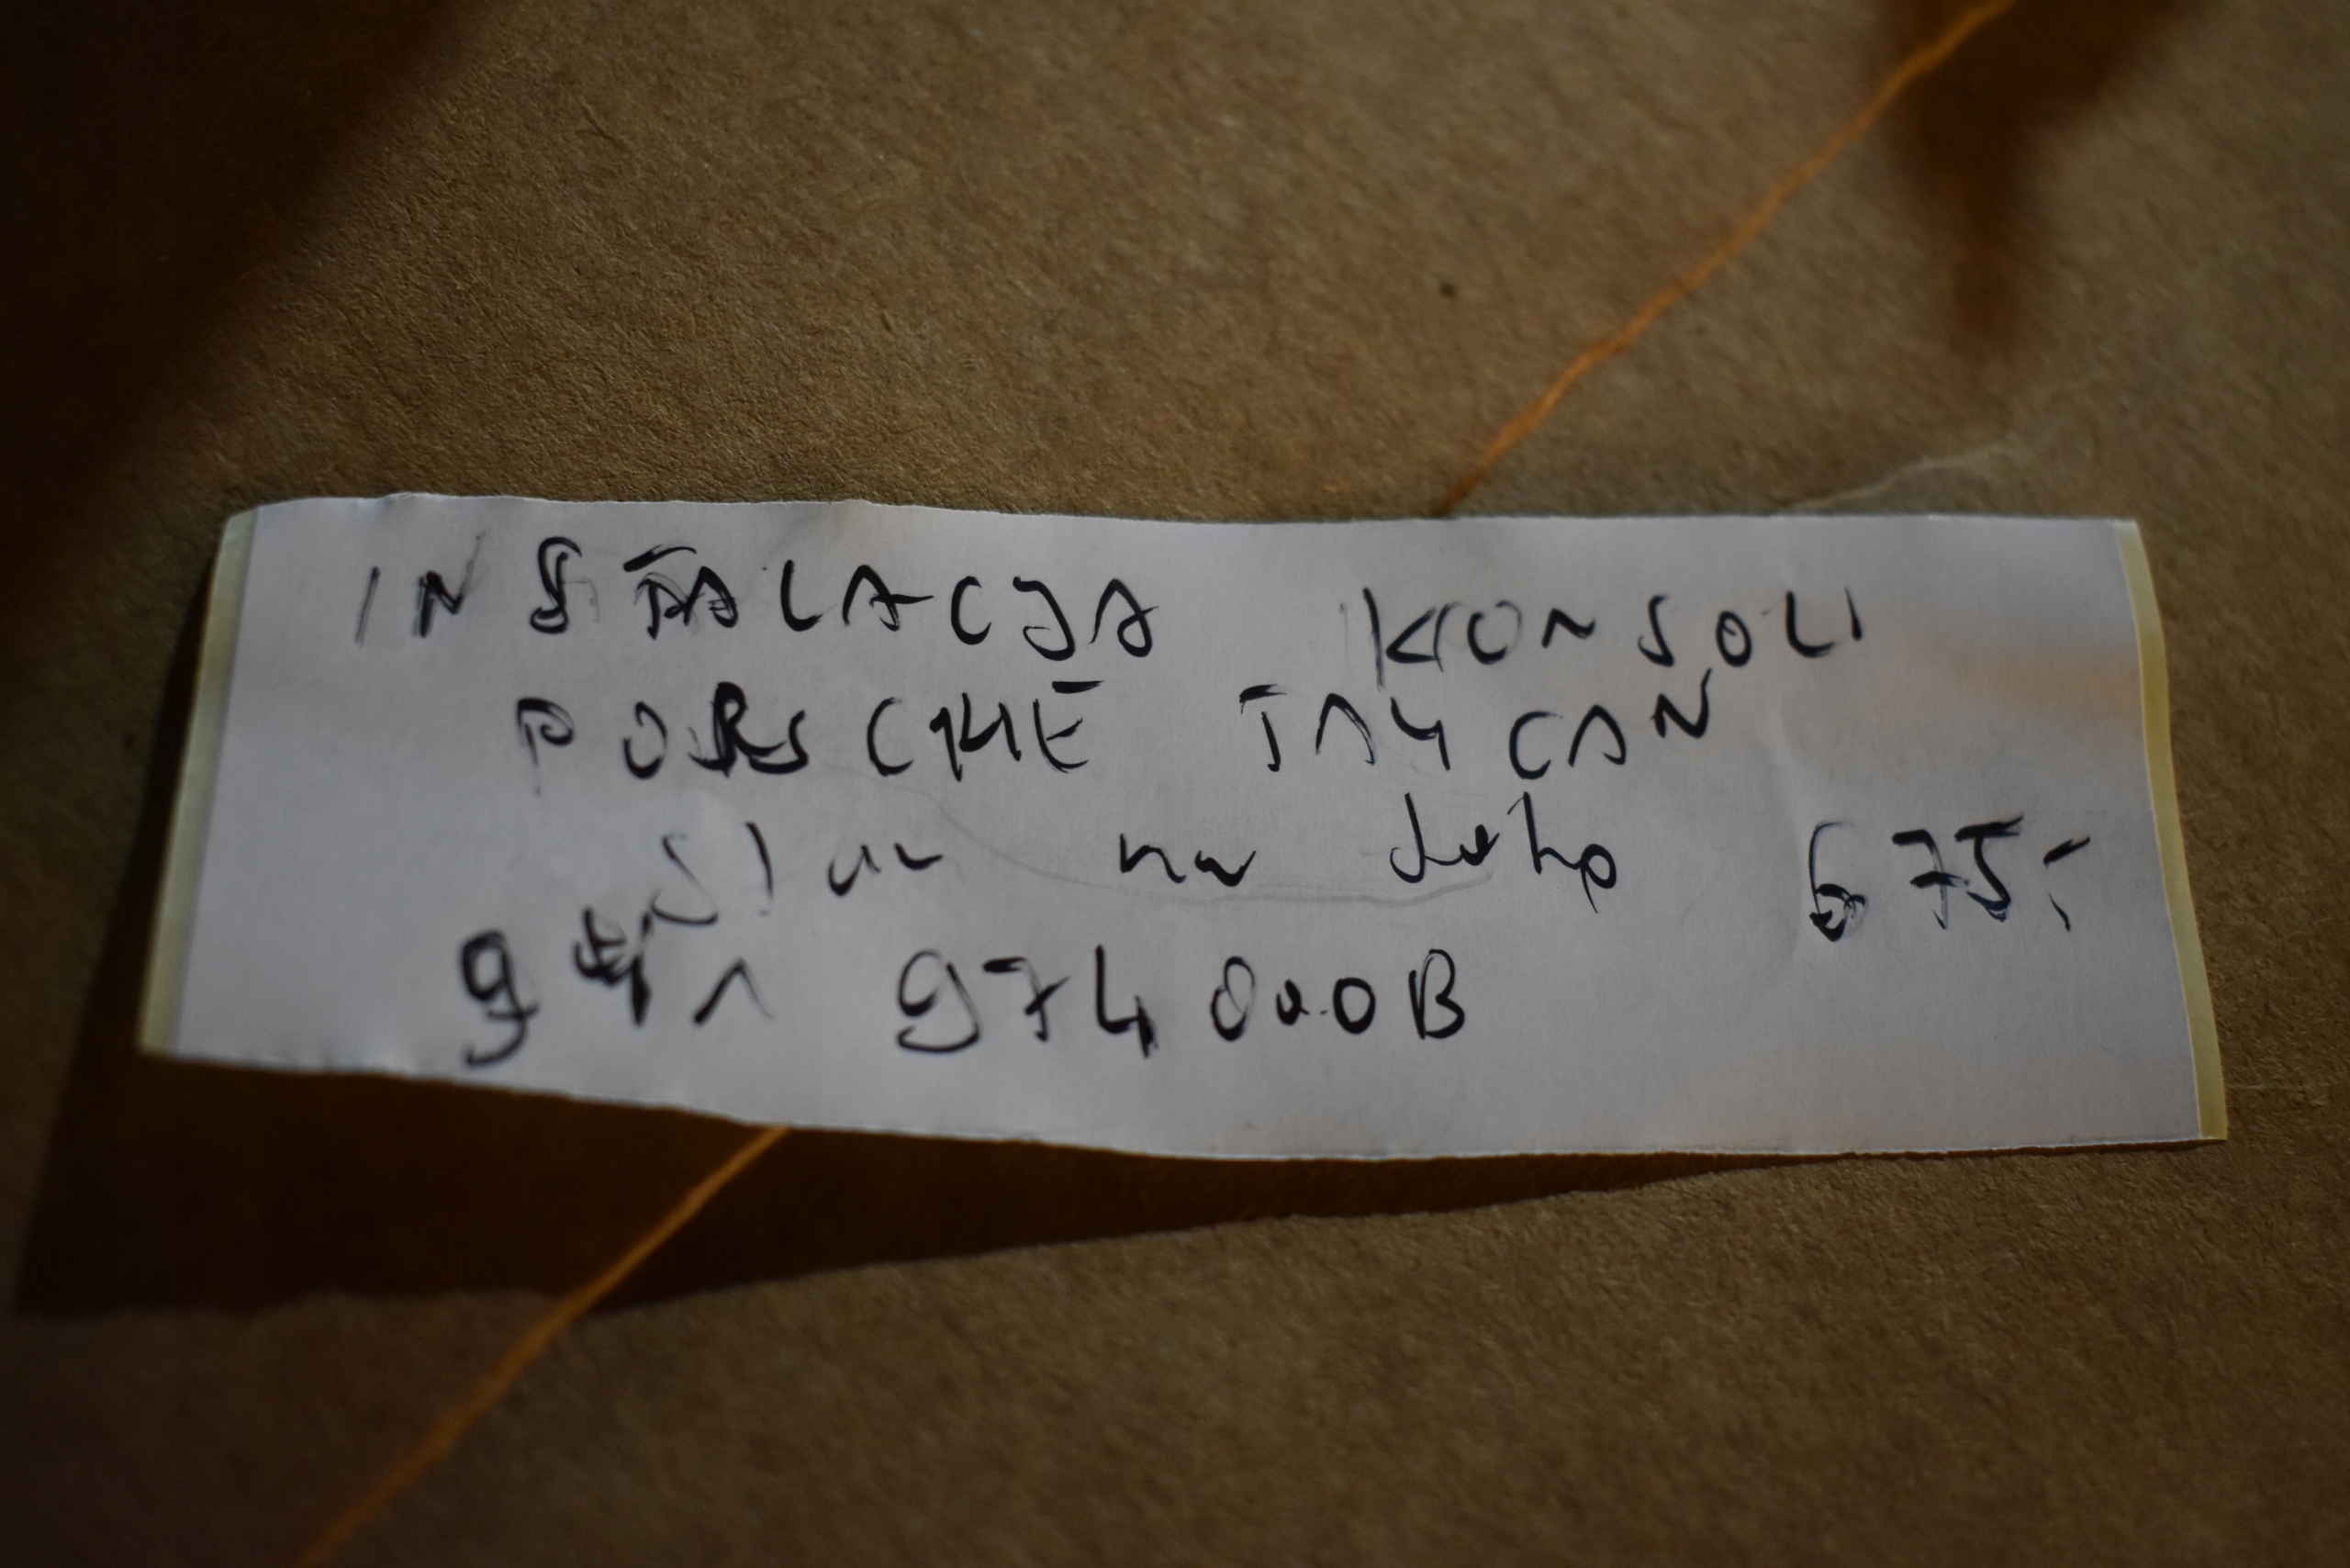 INSTALACJA KONSOLI
PORSCHE TAYCAN
stan na foto 675,-
9J1 974 000B